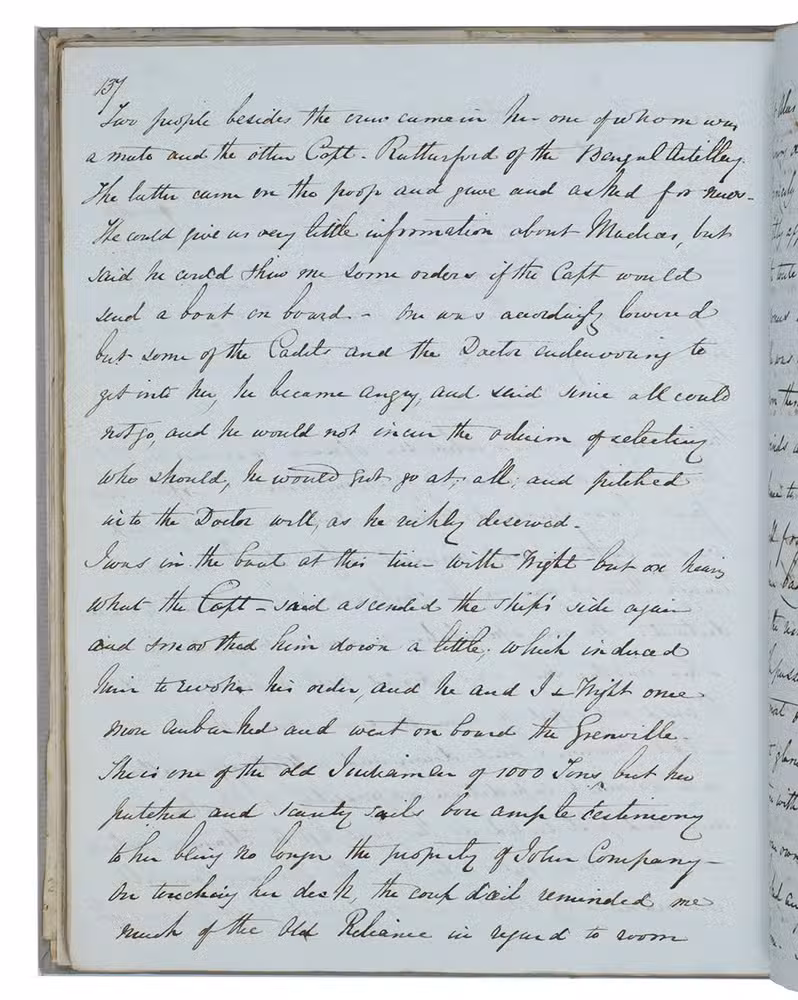 137
Two people besides the crew came in her one of whom was
a mate and the other Capt. Rutherford of the Bengal Artillery.
The latter came on the poop and gave and asked for news.
He could give us very little information about Madras, but
said he could shew me some orders if the Capt would
send a boat on board. - One was accordingly lowered
but some of the Cadets and the Doctor endeavouring to
get into her, he became angry, and said since all could
not go, and he would not incur the odium of selecting
who should, he would not go at all; and pitched
into the Doctor well, as he richly deserved.
I was in the boat at this time with Wight but on hearing
what the Capt - said ascended the ship's side again
and smoothed him down a little; which induced
him to revoke his order, and he and I & Wight once
more embarked and went on board the Grenville.
She is one of the old Indiamen of 1000 Tons, but her
patched and scanty sails bore ample testimony
to her being no longer the property of John Company -
On touching her deck, the coup d'œil reminded me
much of the Old Reliance in regard to room